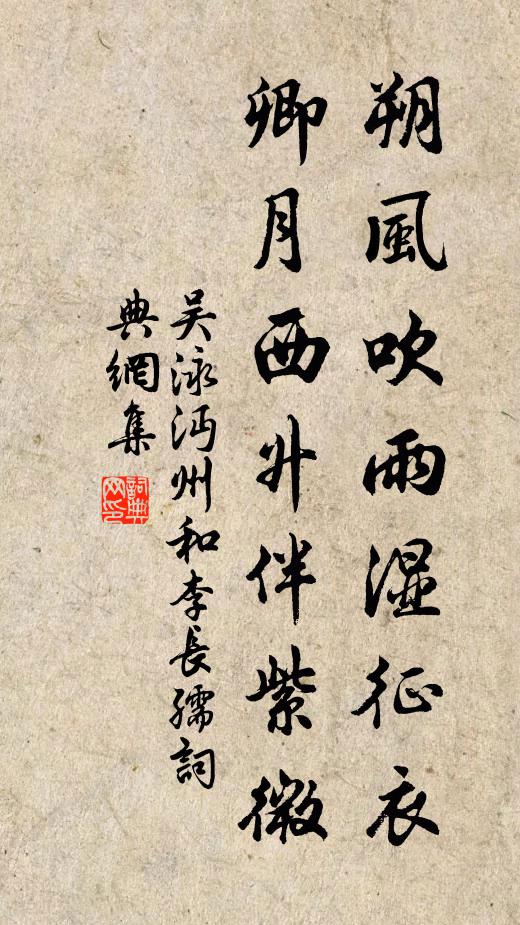 朔風吹雨濕征衣
卿月西升伴紫微
吴泳沔州和李長孺詞
典網集
詞典網印